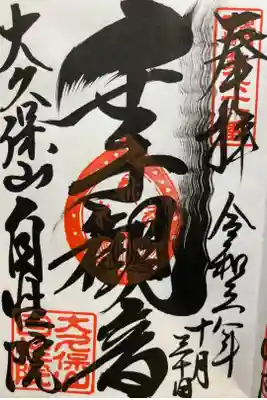 奉拝
千手観音
令和六年
十月
三十日
大久保山 自性院
大久保山